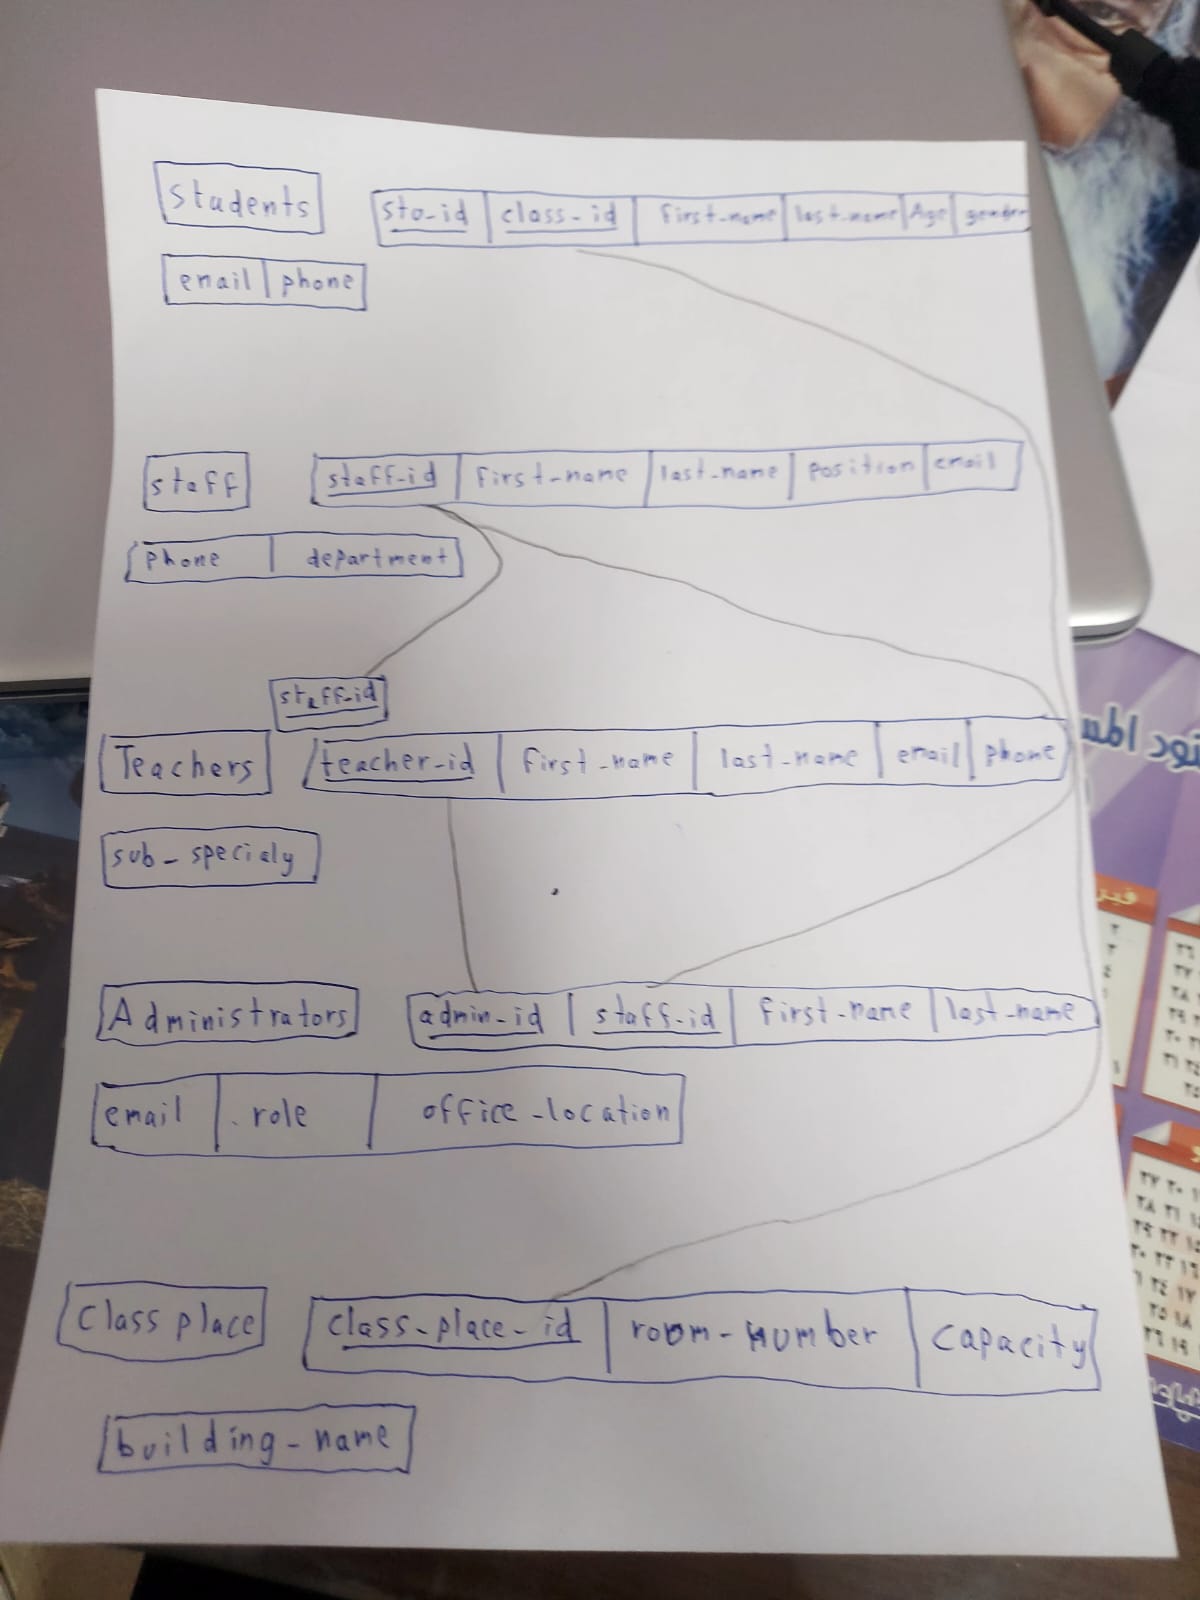 Students
sto-id class-id First-name last-name Age gender
email phone
staff
staff-id First-name last-name position email
phone department
staff-id
Teachers teacher-id first-name last-name email phone
sub-specialy
Administrators admin-id staff-id first-name last-name
email role office-location
Class place class-place-id room-number capacity
building-name